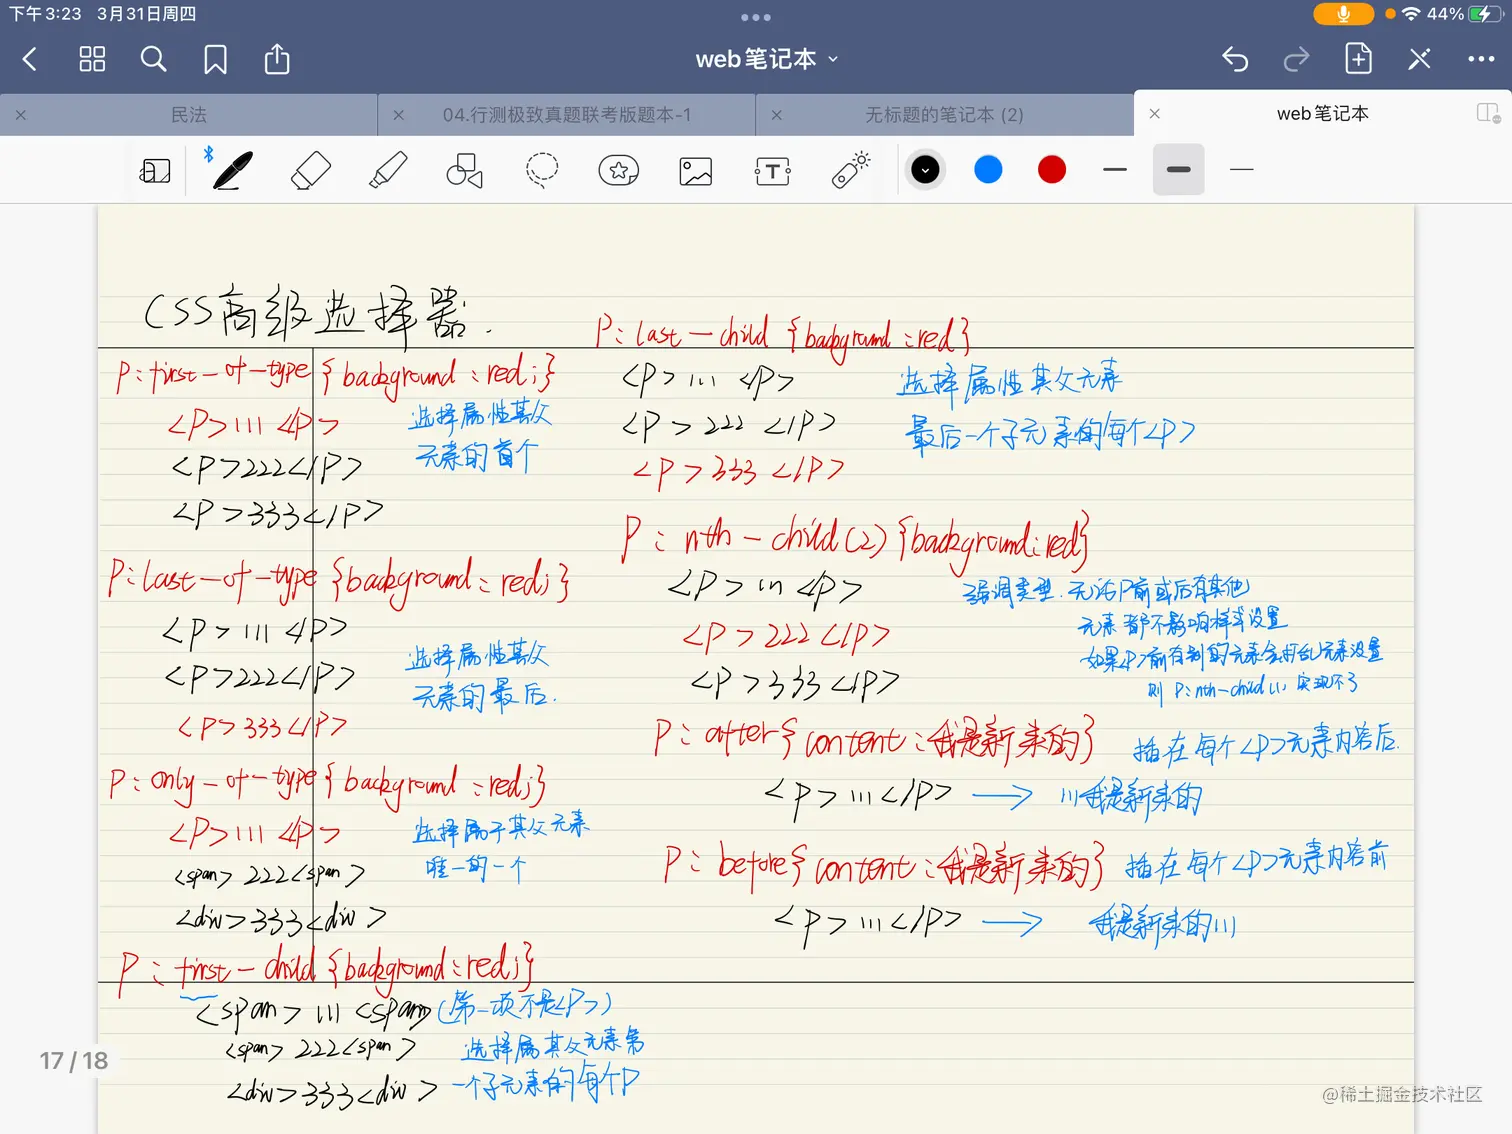 下午3:23 3月31日周四
44%
web笔记本
民法
04.行测极致真题联考版题本-1
无标题的笔记本 (2)
web笔记本
CSS高级选择器.
P:first-of-type{background:red;}
<P>111<P>
<P>222</P>
<P>333</P>
选择属性其父
元素的首个
P:last-of-type{background:red;}
<P>111</P>
<P>222</P>
<P>333</P>
选择属性其父
元素的最后.
P:only-of-type{background:red;}
<P>111<P>
<span>222<span>
<div>333<div>
选择属于其父元素
唯一的一个
P:first-child{background:red;}
<span>111<span>(第一项不是<P>)
<span>222<span>
<div>333<div>
选择属其父元素第
一个子元素的每个P
P:last-child{background:red}
<P>111<P>
<P>222</P>
<P>333</P>
选择属性其父元素
最后一个子元素的每个<P>
P:nth-child(2){background:red}
<P>111<P>
<P>222</P>
<P>333</P>
强调类型.无论P前或后有其他
元素都不影响样式设置
如果<P>前有别的元素会打乱元素设置
则P:nth-child(1)实现不了
P:after{content:我是新来的}
插在每个<P>元素内容后.
<P>111</P>→111我是新来的
P:before{content:我是新来的}
插在每个<P>元素内容前
<P>111</P>→我是新来的111
17/18
@稀土掘金技术社区